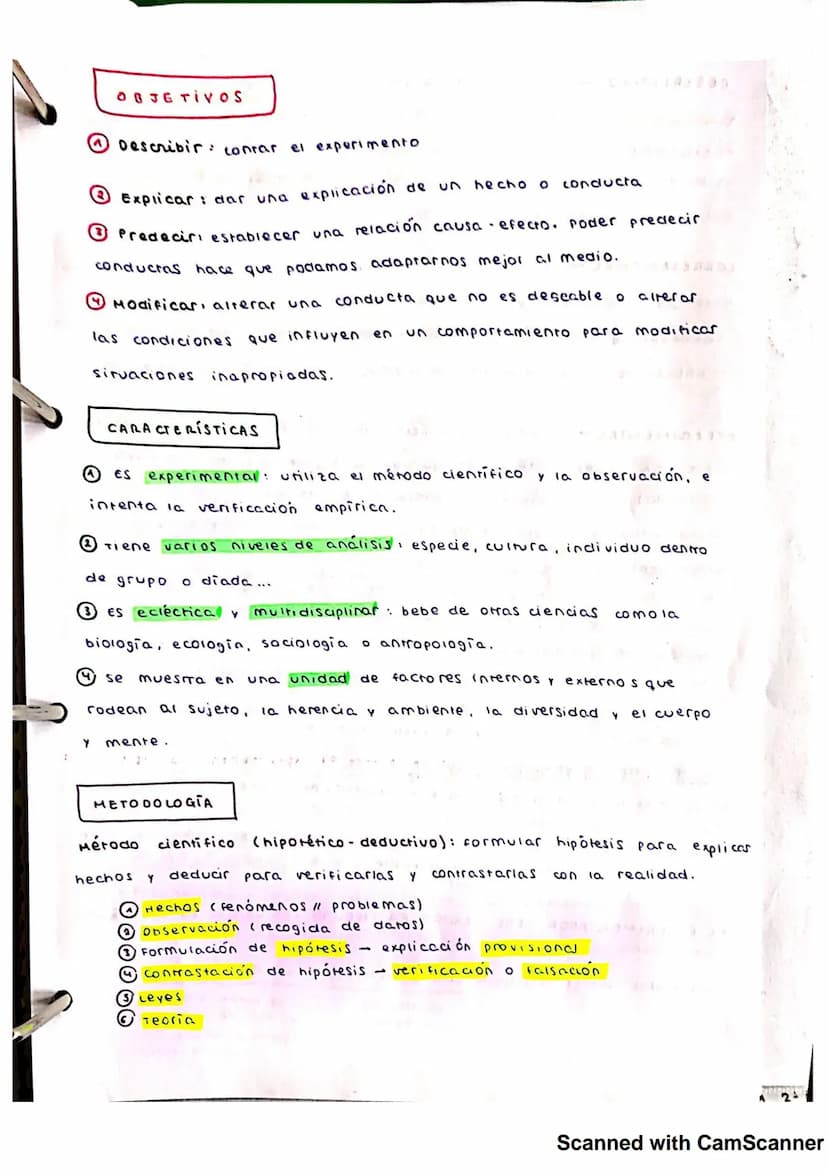 OBJETIVOS
① Describir: contar el experimento
② Explicar: dar una explicación de un hecho o conducta
③ Predecir: establecer una relación causa-efecto. Poder predecir
conductas hace que podamos adaptarnos mejor al medio.
④ Modificar: alterar una conducta que no es deseable o alterar
las condiciones que influyen en un comportamiento para modificar
situaciones inapropiadas.
CARACTERÍSTICAS
① Es experimental: utiliza el método científico y la observación, e
intenta la verificación empírica.
② Tiene varios niveles de análisis: especie, cultura, individuo dentro
de grupo o díada...
③ Es ecléctica y multidisciplinar: bebe de otras ciencias como la
biología, ecología, sociología o antropología.
④ Se muestra en una unidad de factores internos y externos que
rodean al sujeto, la herencia y ambiente, la diversidad y el cuerpo
y mente.
METODOLOGÍA
Método científico (hipotético-deductivo): formular hipótesis para explicar
hechos y deducir para verificarlas y contrastarlas con la realidad.
① Hechos (fenómenos // problemas)
② Observación (recogida de datos)
③ Formulación de hipótesis - explicación provisional
④ Contrastación de hipótesis - verificación o falsación
⑤ Leyes
⑥ Teoría
Scanned with CamScanner